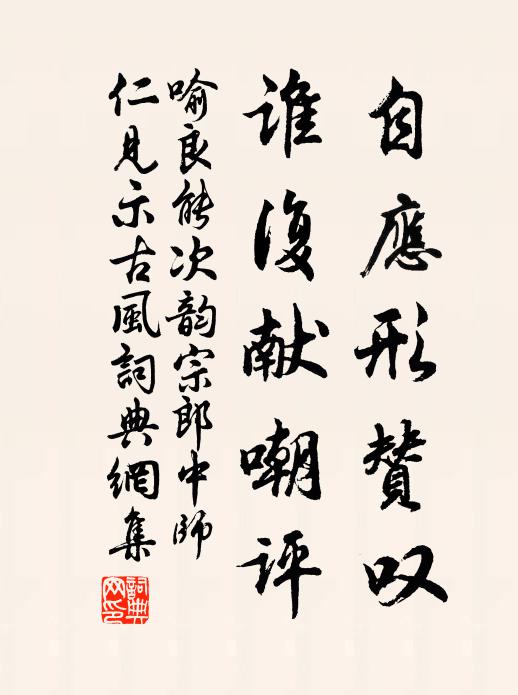 自應形賛叹
誰復献嘲评
喻良能次韵宗郎中師
仁見示古風詞典網集
詞典网印